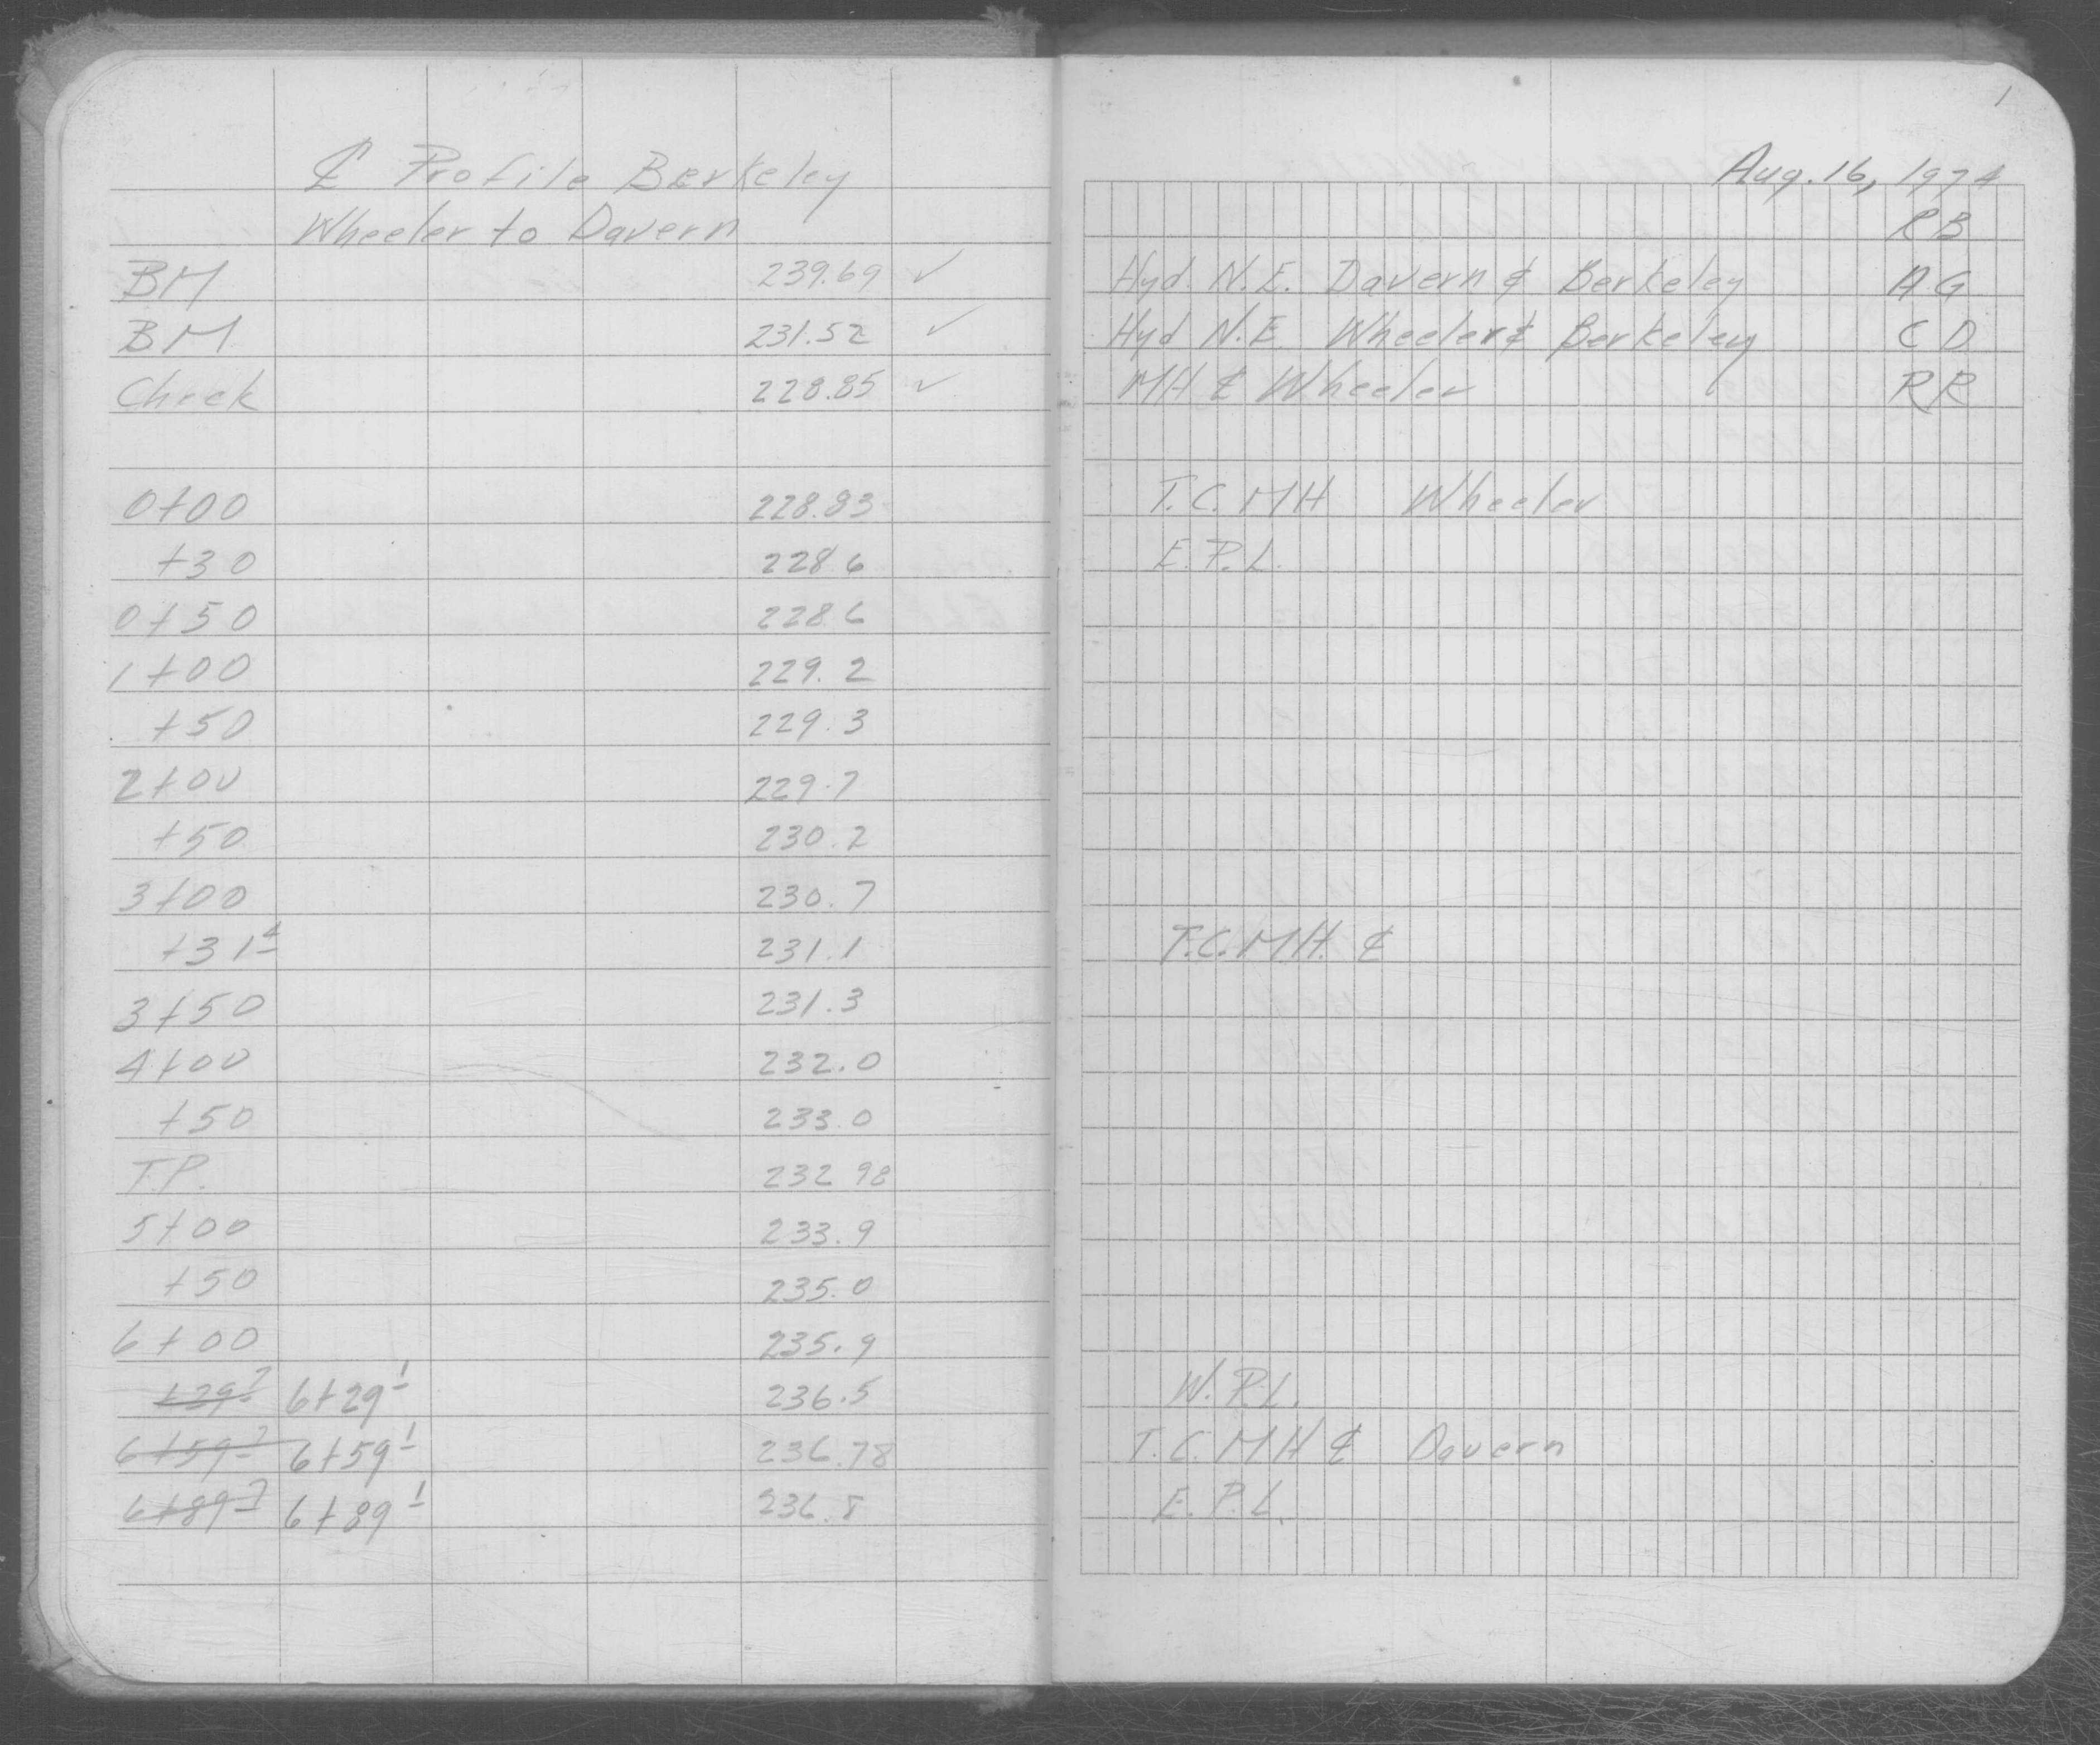 1
Aug. 16, 1974
℄ Profile Berkeley
Wheeler to Davern RB
BM 239.69 ✓ Hyd. N.E. Davern & Berkeley AG
BM 231.52 ✓ Hyd N.E. Wheeler & Berkeley CD
Check 228.85 ✓ MH ℄ Wheeler RR
0+00 228.83 T.C. MH Wheeler
+30 228.6 E.P.L.
0+50 228.6
1+00 229.2
+50 229.3
2+00 229.7
+50 230.2
3+00 230.7
+31⁴ 231.1 T.C. MH. ℄
3+50 231.3
4+00 232.0
+50 233.0
T.P. 232.98
5+00 233.9
+50 235.0
6+00 235.9
+29⁷ 6+29¹ 236.5 W.P.L.
6+59⁷ 6+59¹ 236.78 T.C. MH ℄ Davern
6+89⁷ 6+89¹ 236.8 E.P.L.